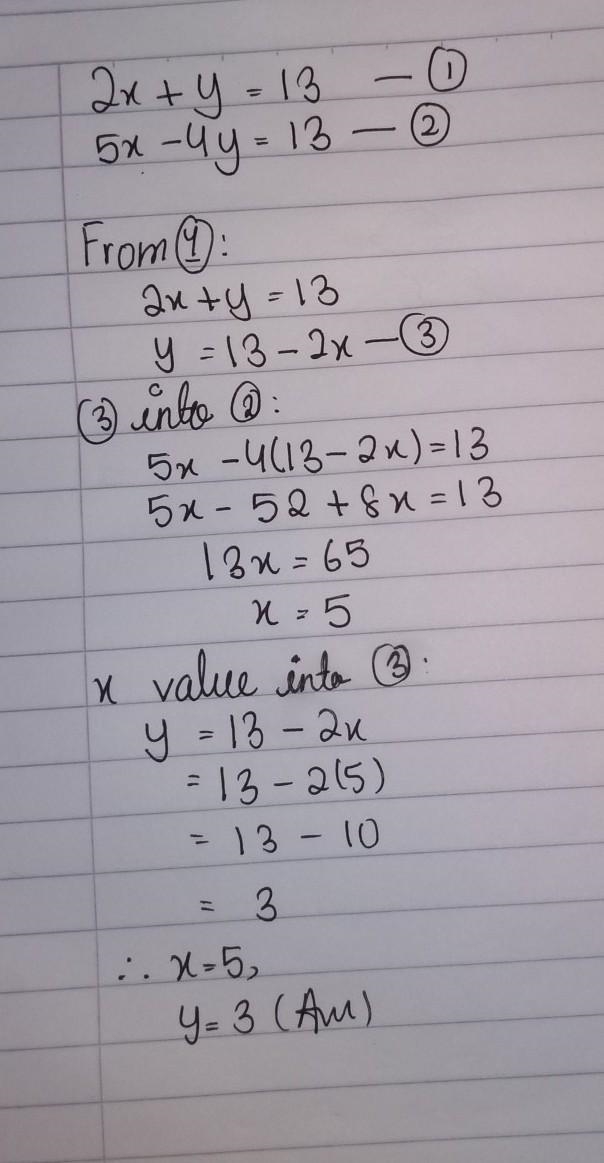 2x + y = 13 — ①
5x - 4y = 13 — ②
From ①:
2x + y = 13
y = 13 - 2x — ③
③ into ②:
5x - 4(13 - 2x) = 13
5x - 52 + 8x = 13
13x = 65
x = 5
x value into ③:
y = 13 - 2x
= 13 - 2(5)
= 13 - 10
= 3
∴ x = 5,
y = 3 (Ans)